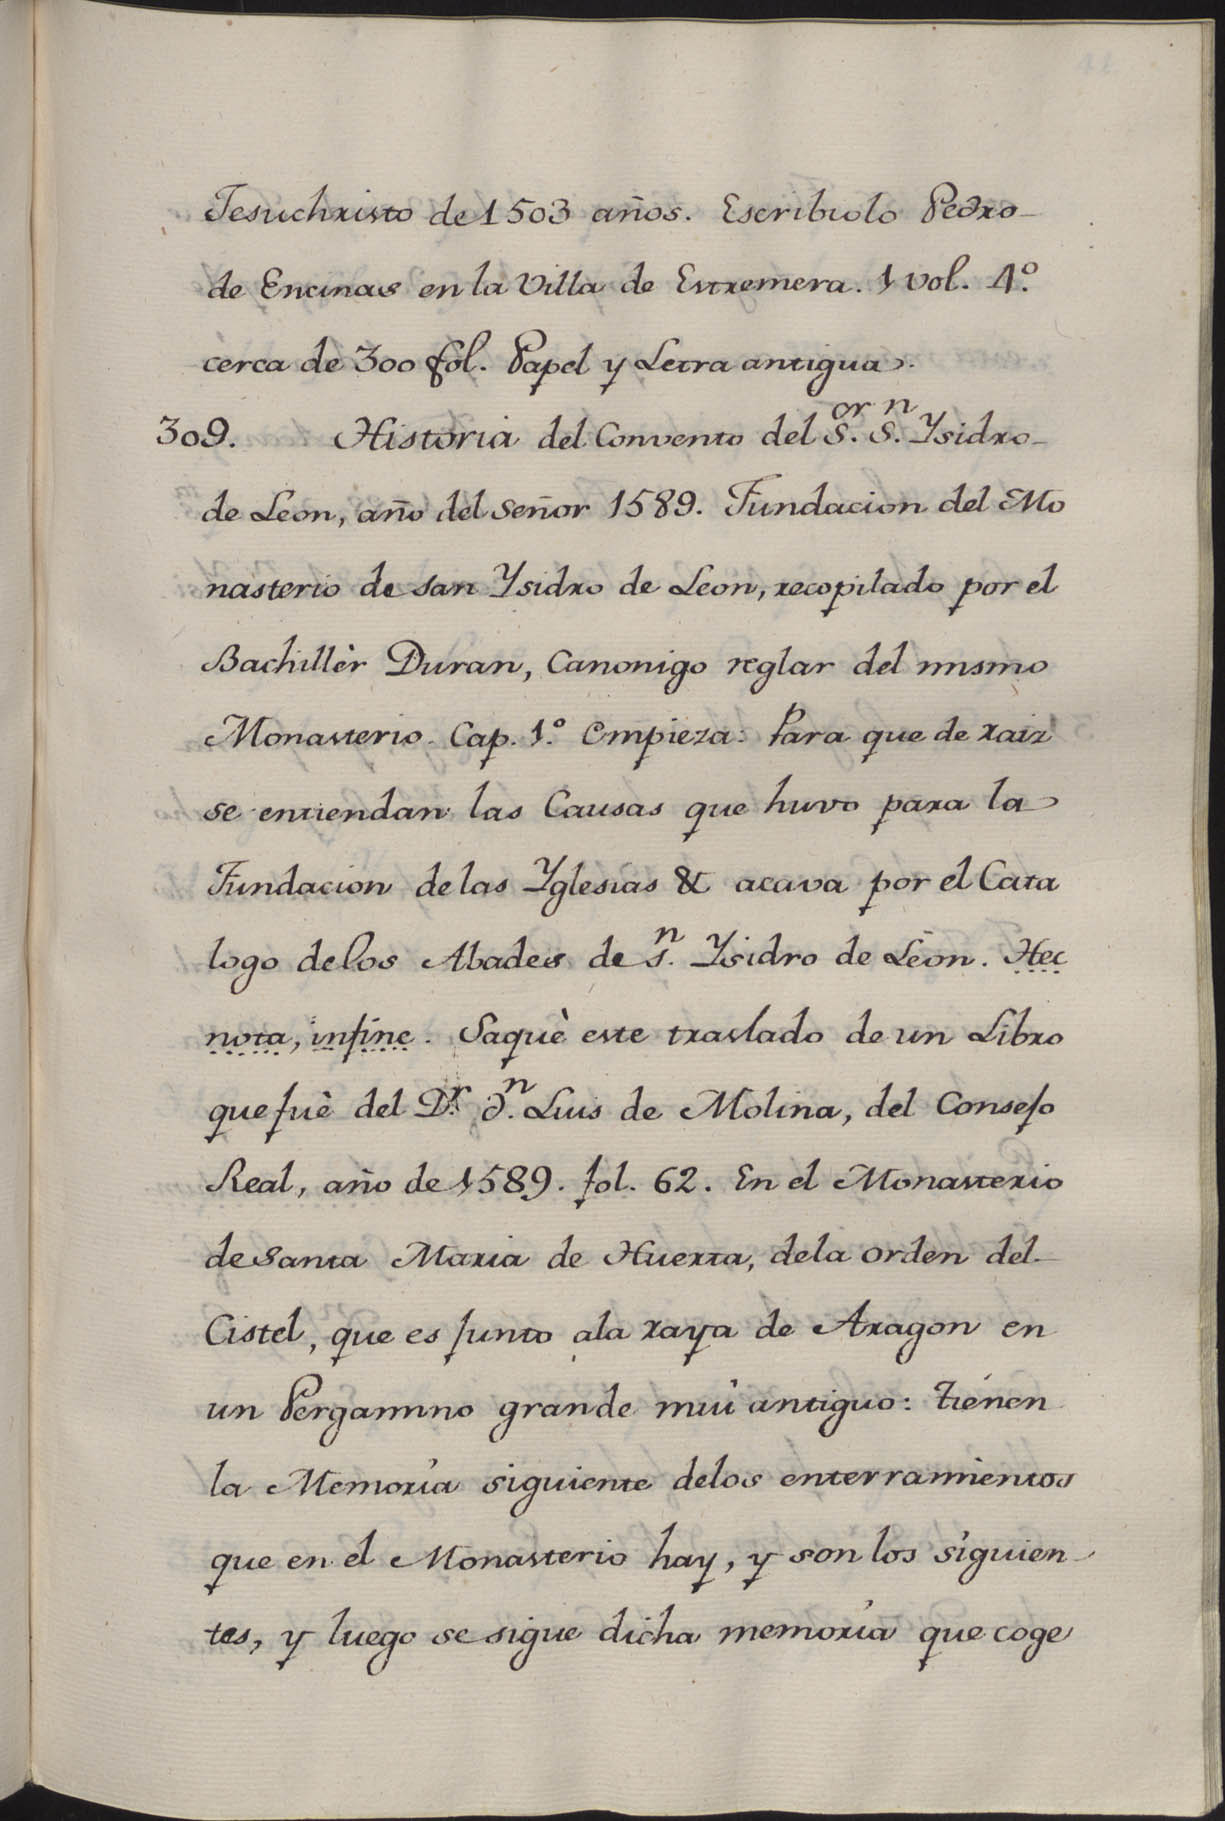 Jesuchristo de 1503 años. Escribiolo Pedro
de Encinas en la Villa de Estremera. 1 vol. 4.º
cerca de 300 fol. Papel y Letra antigua.
309. Historia del Convento del S.or S.n Ysidro
de Leon, año del Señor 1589. Fundacion del Mo
nasterio de san Ysidro de Leon, recopilado por el
Bachillèr Duran, Canonigo reglar del mismo
Monasterio. Cap. 1.º Empieza: Para que de raiz
se entiendan las Causas que huvo para la
Fundacion de las Yglesias & acava por el Cata
logo de los Abades de S.n Ysidro de Leon. Hec
nota, infine. Saquè este traslado de un Libro
que fuè del D.r D.n Luis de Molina, del Consejo
Real, año de 1589. fol. 62. En el Monasterio
de Santa Maria de Huerta, dela orden del
Cistel, que es junto ala raya de Aragon en
un Pergamino grande mui antiguo: tienen
la Memoria siguiente delos enterramientos
que en el Monasterio hay, y son los siguien
tes, y luego se sigue dicha memoria que coge